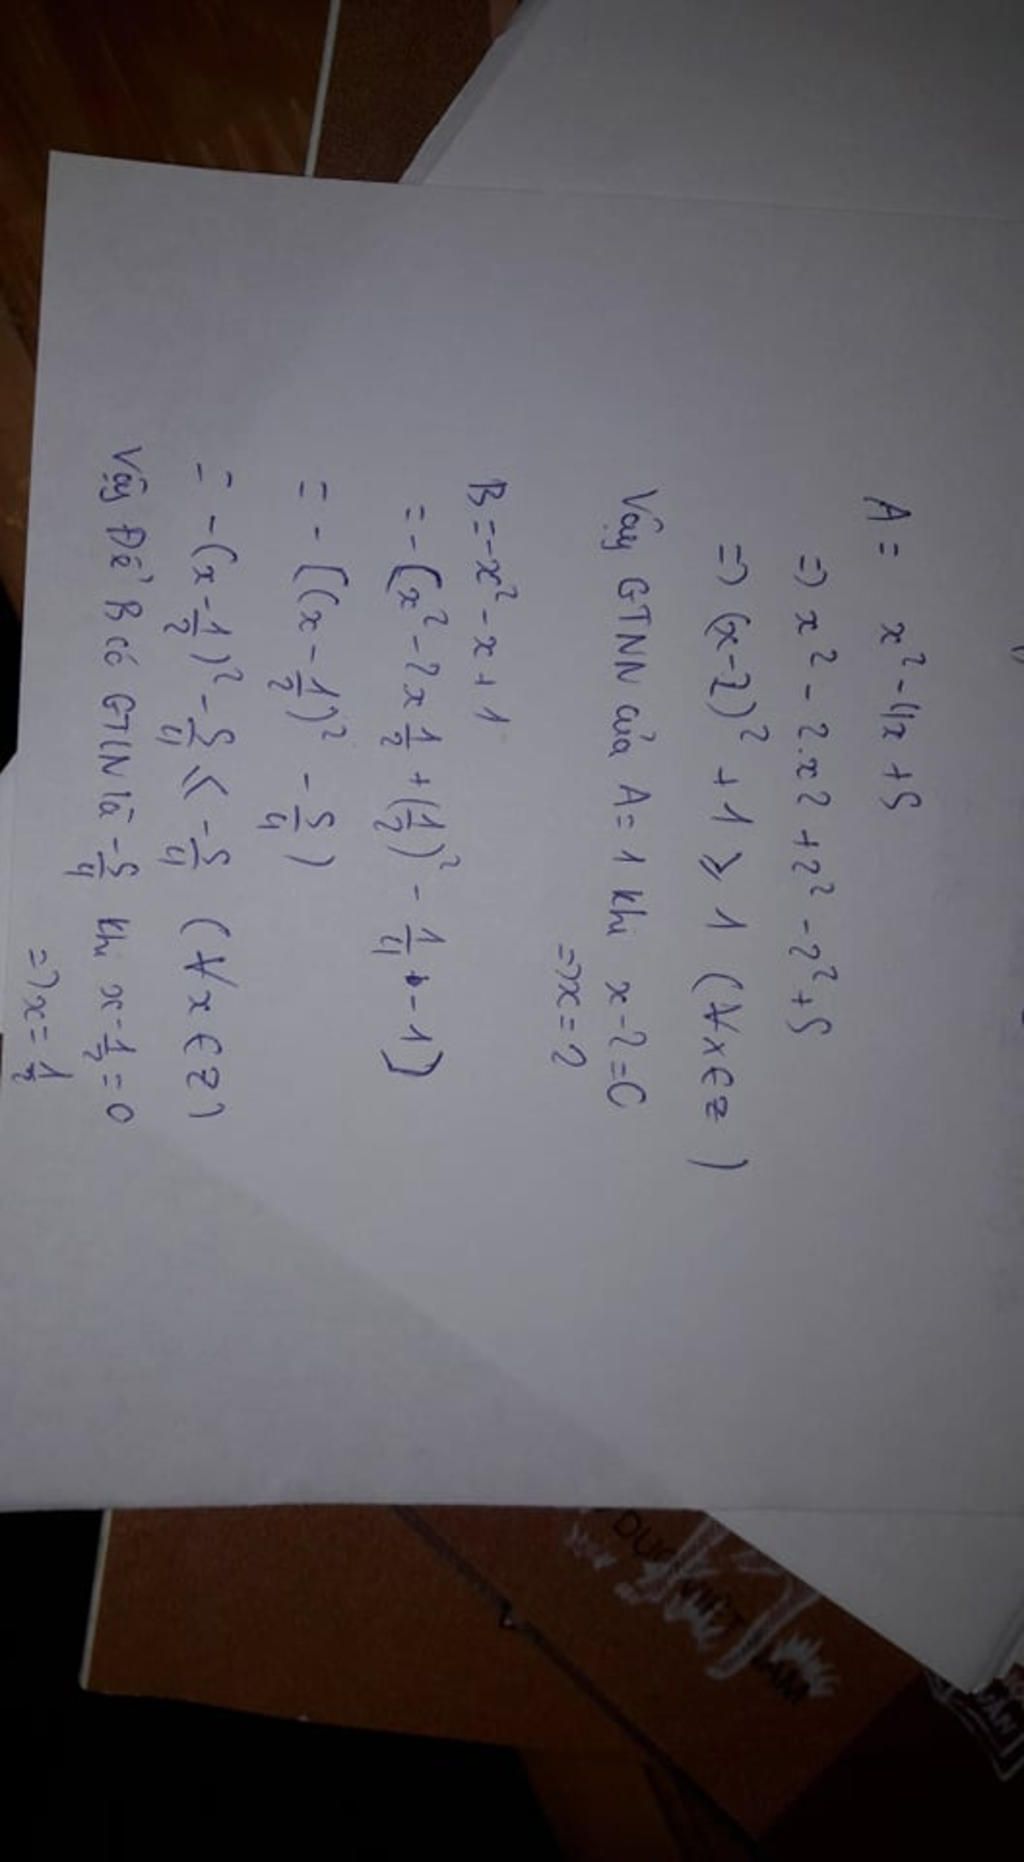 A = x² - 4x + 5
=> x² - 2.x2 + 2² - 2² + 5
=> (x-2)² + 1 ≥ 1 (∀x∈z)
Vậy GTNN của A = 1 khi x-2=0
=> x = 2
B = -x² - x + 1
= -(x² - 2x 1/2 + (1/2)² - 1/4 - 1)
= -[(x - 1/2)² - 5/4)
= -(x - 1/2)² - 5/4 ≤ -5/4 (∀x∈z)
Vậy Để B có GTLN là -5/4 khi x - 1/2 = 0
=> x = 1/2
VIỆT